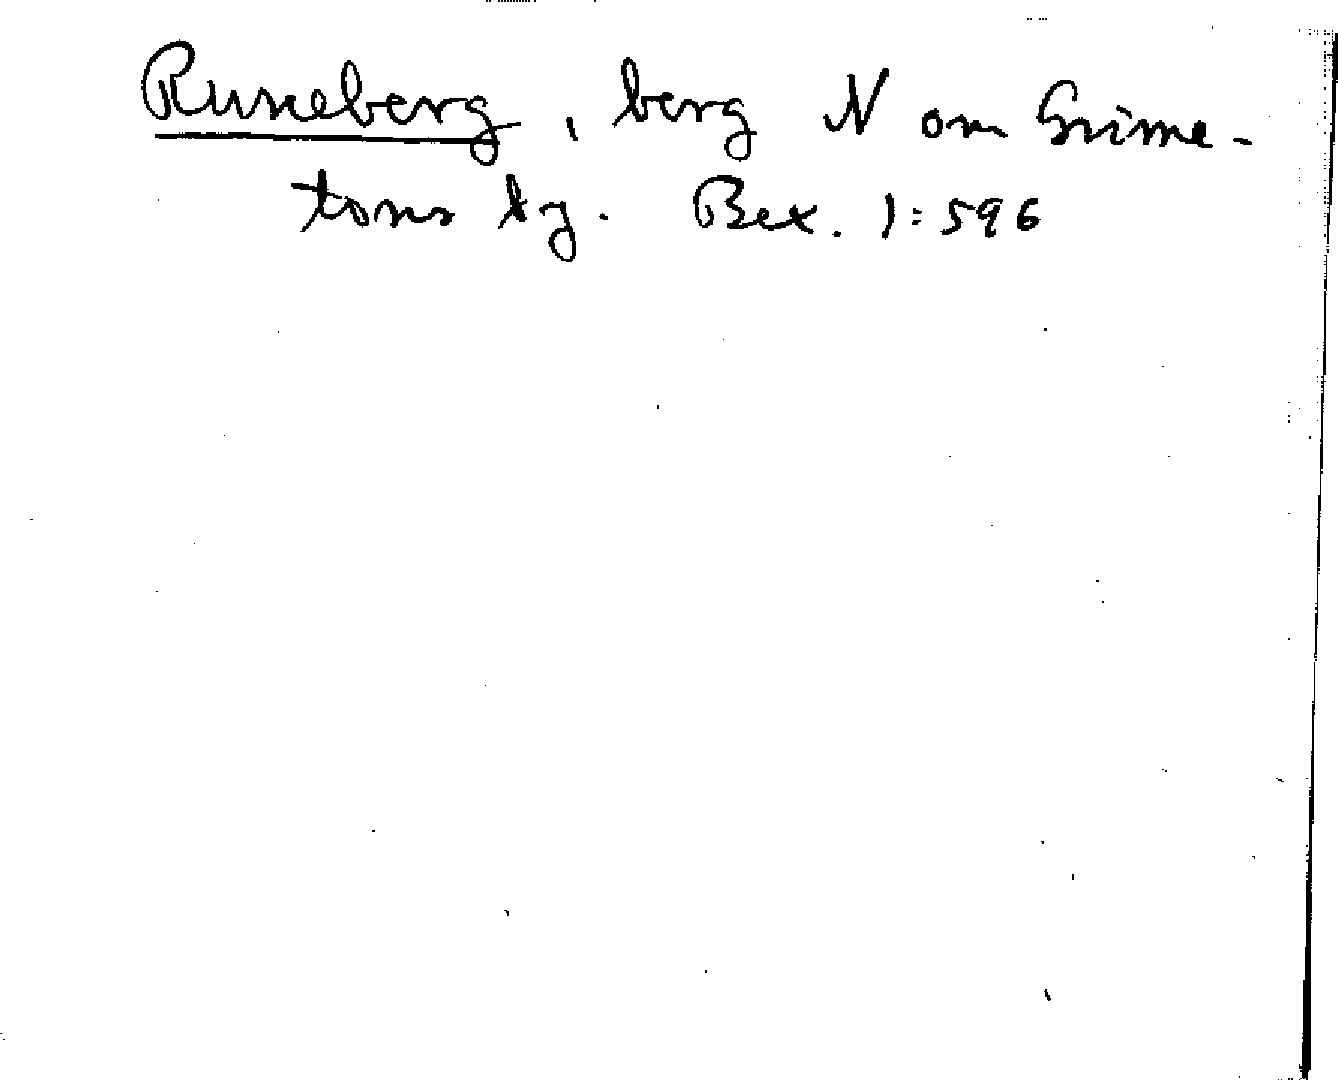 Runeberg, berg N om Grime-
tons ky. Bex. 1:596